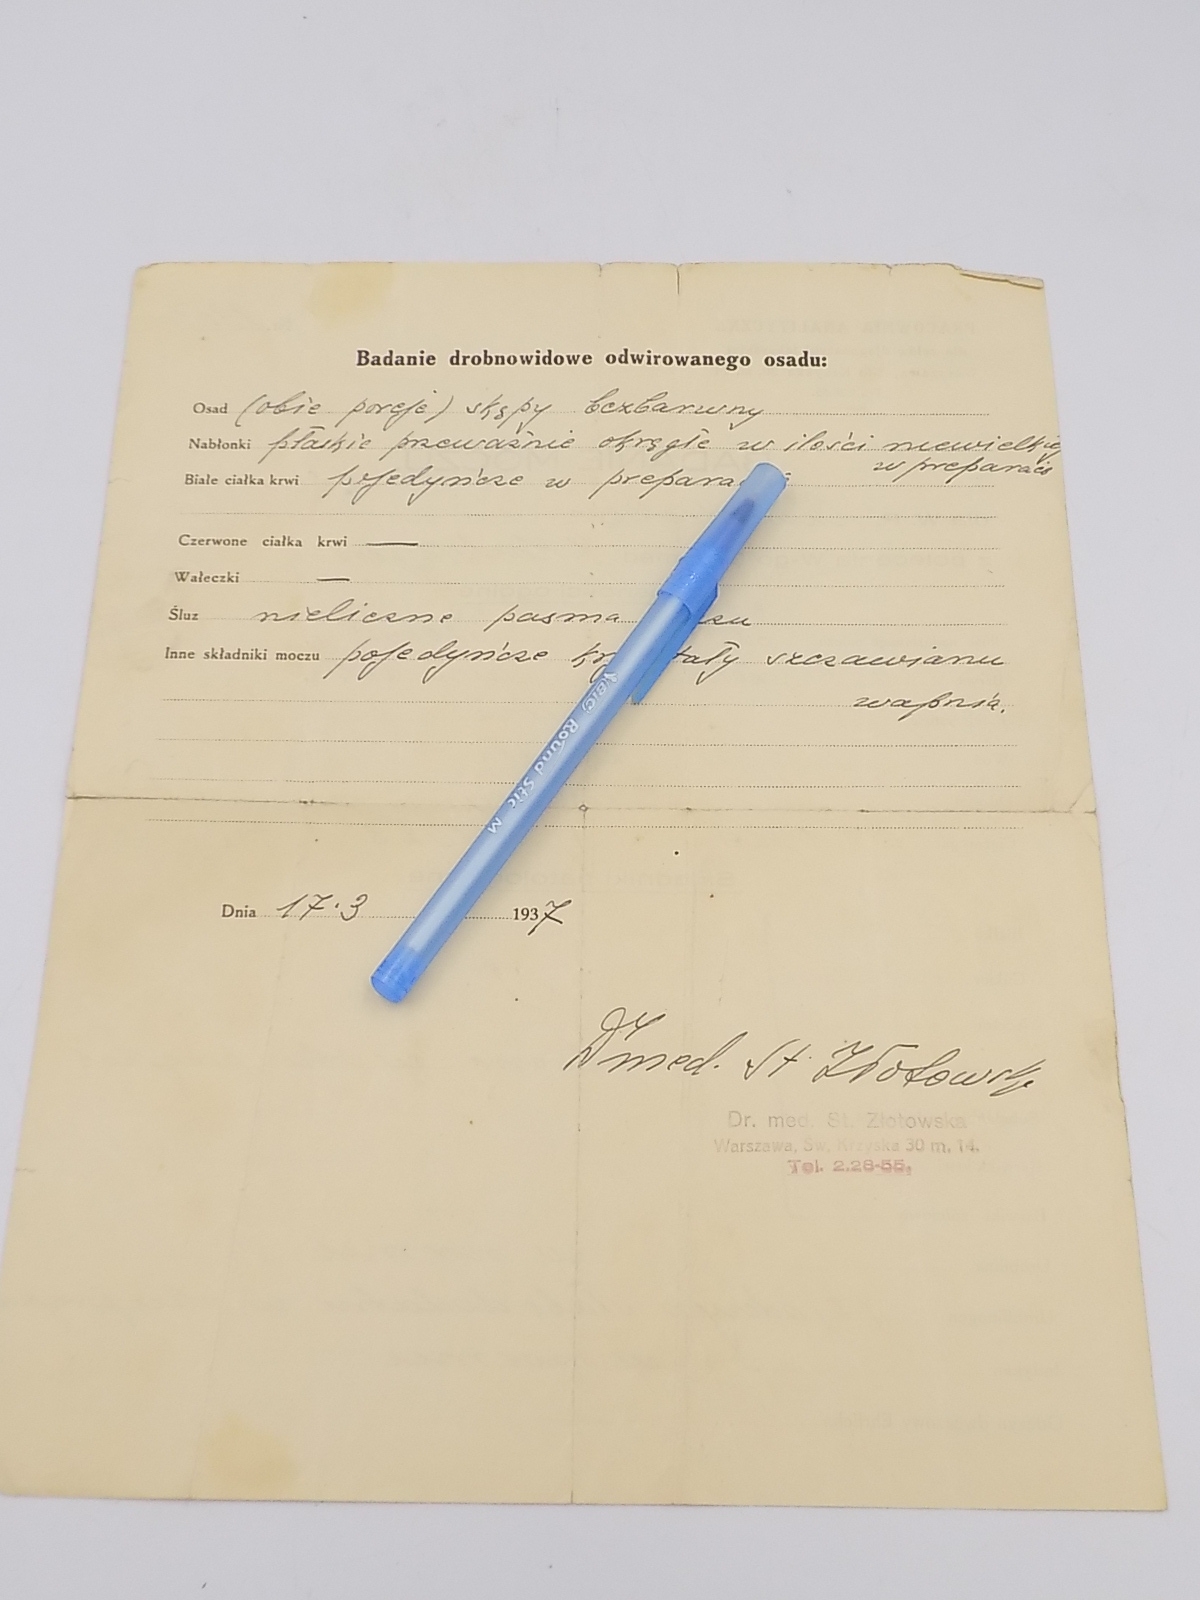 Badanie drobnowidowe odwirowanego osadu:
Osad (obie porcje) skąpy bezbarwny
Nabłonki płaskie przeważnie okrągłe w ilości niewielkiej
w preparacie
Białe ciałka krwi pojedyńcze w prepara
Czerwone ciałka krwi —
Wałeczki —
Śluz nieliczne pasma
Inne składniki moczu pojedyńcze kryształy szczawianu
wapnia.
BIC Round Stic M
Dnia 17.3 1937
Dr med. St. Złotowska
Dr. med. St. Złotowska
Warszawa, Św. Krzyska 30 m. 14.
Tel. 2.26-55.